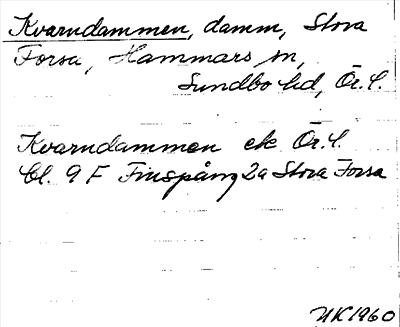 Kvarndammen, damm, Stora
Forsa, Hammars sn,
Sundbo hd, Ör. l.
Kvarndammen ek Ör. l.
Bl. 9 F Finspång 2a Stora Forsa
UK 1960